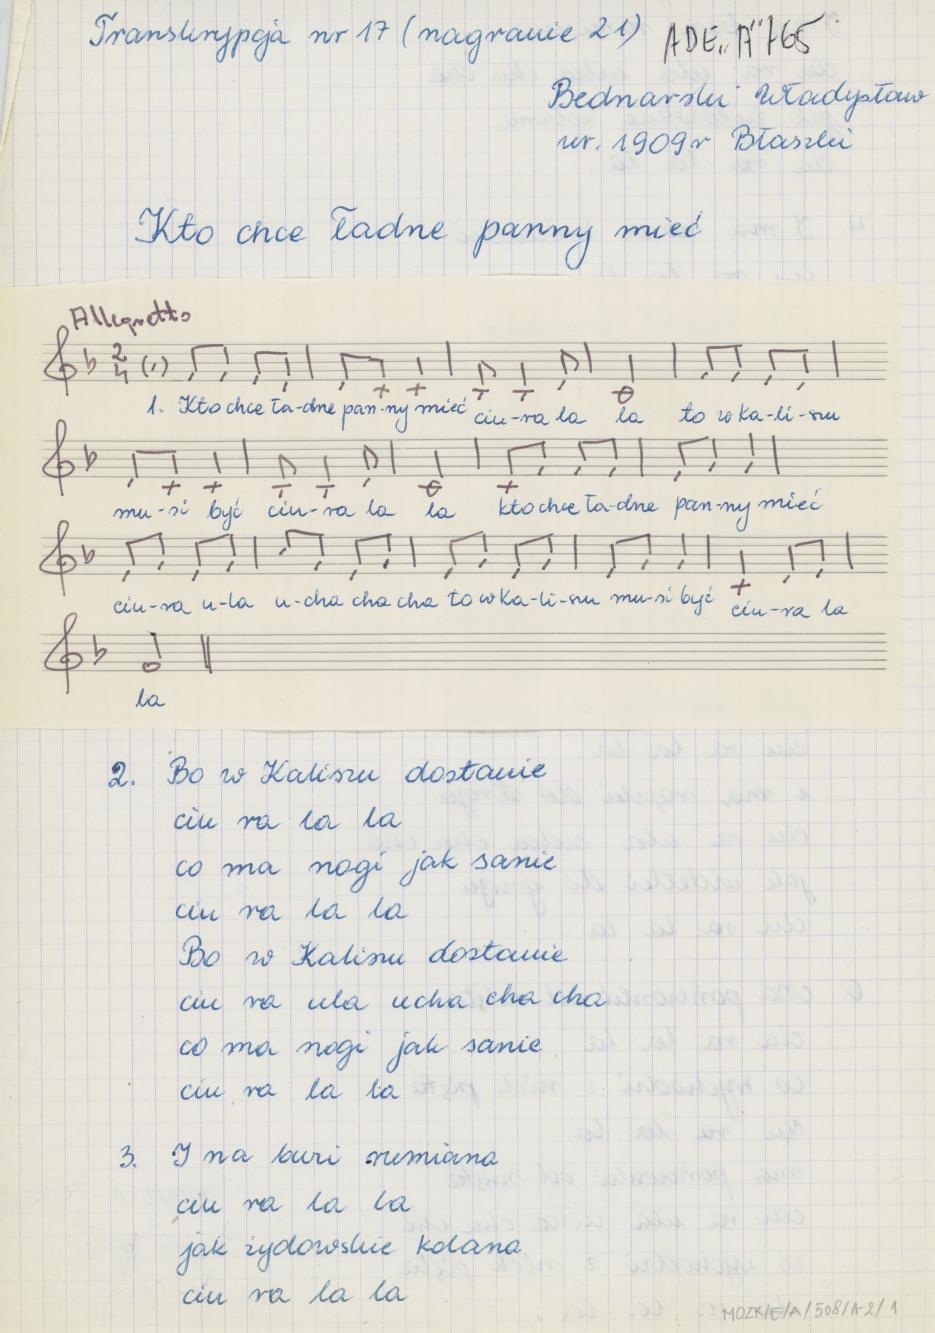 Transkrypcja nr 17 (nagranie 21)
ADE „A" 765
Bednarski Władysław
ur. 1909 r Błaszki
Kto chce ładne panny mieć
Allegretto
2
4
1. Kto chce ła-dne pan-ny mieć ciu-ra la la to w Ka-li-szu
mu-si być ciu-ra la la kto chce ła-dne pan-ny mieć
ciu-ra u-la u-cha cha cha to w Ka-li-szu mu-si być ciu-ra la
la
2. Bo w Kaliszu dostanie
ciu ra la la
co ma nogi jak sanie
ciu ra la la
Bo w Kaliszu dostanie
ciu ra ula ucha cha cha
co ma nogi jak sanie
ciu ra la la
3. I na buzi rumiana
ciu ra la la
jak żydowskie kolana
ciu ra la la
MOZK/E/A/508/1-2/1